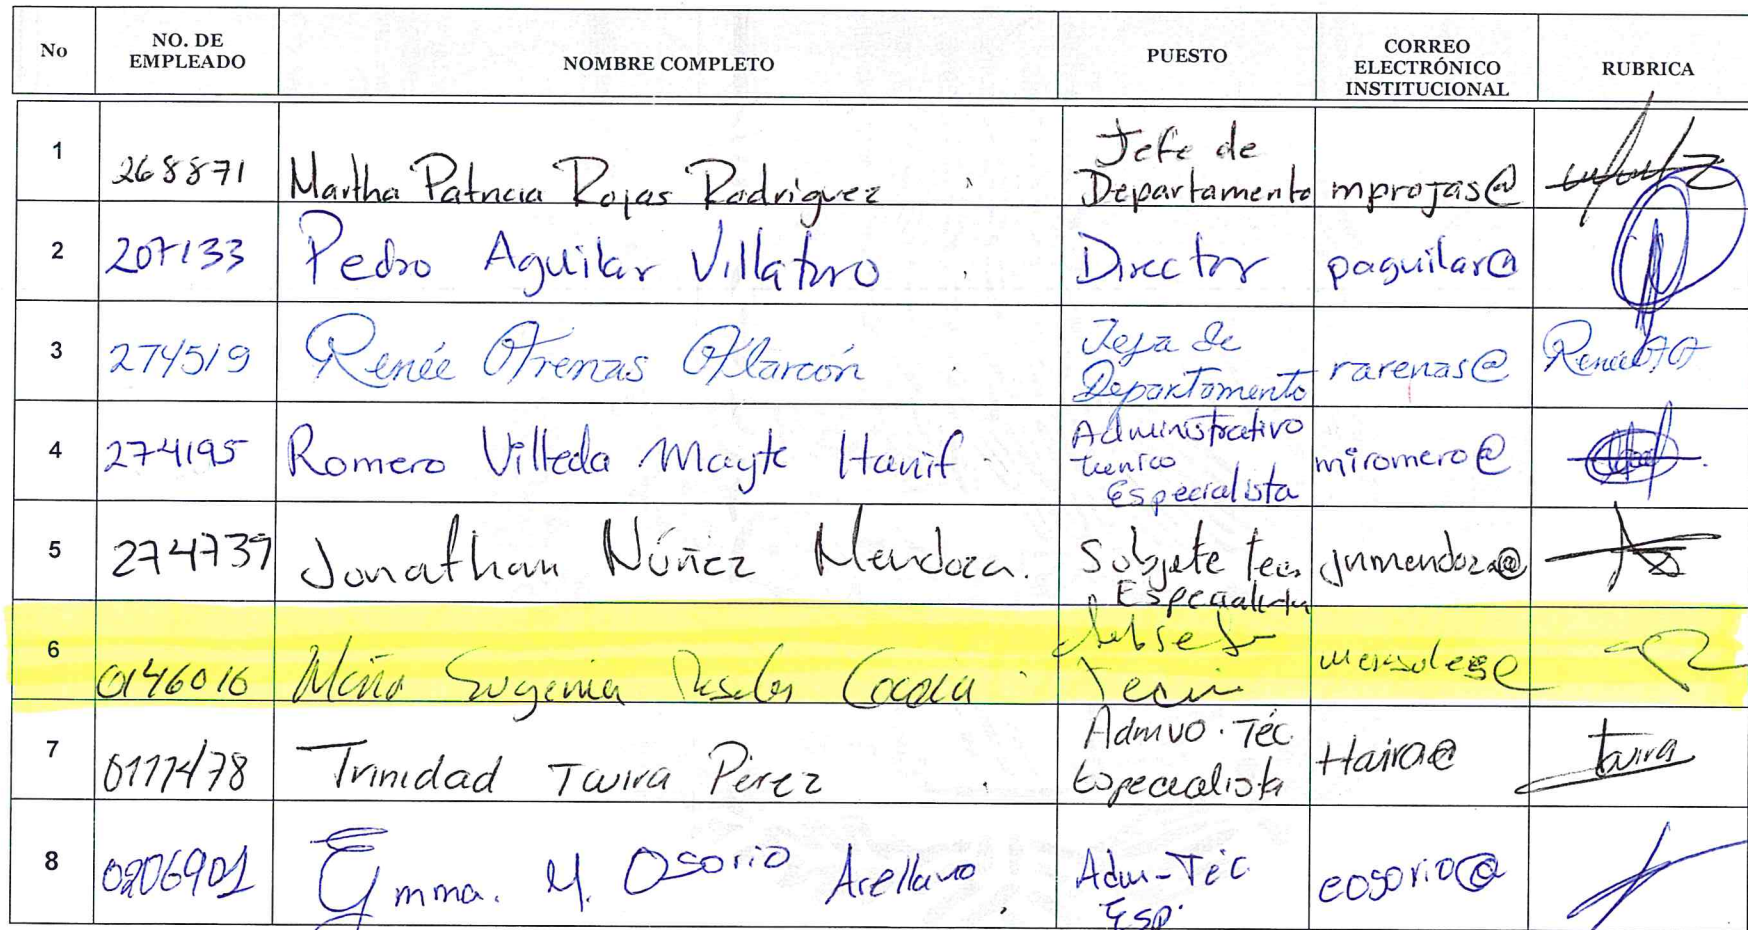 No NO. DE EMPLEADO NOMBRE COMPLETO PUESTO CORREO ELECTRÓNICO INSTITUCIONAL RUBRICA
1 268871 Martha Patricia Rojas Rodriguez Jefe de Departamento mprojas@
2 207133 Pedro Aguilar Villatoro Director paguilar@
3 274519 Renée Arenas Alarcón Jefa de Departamento rarenas@ Renée
4 274195 Romero Villeda Mayte Hanif Administrativo tecnico Especialista miromero@
5 274739 Jonathan Núñez Mendoza. Subjefe Tec. Especialista jnmendoza@
6 0146016 Eugenia
7 Trinidad Tavira Pérez Admvo. Téc. Especialista Tavira
8 0206901 Emma. M. Osorio Arellano Adm-Téc Esp. eosorio@